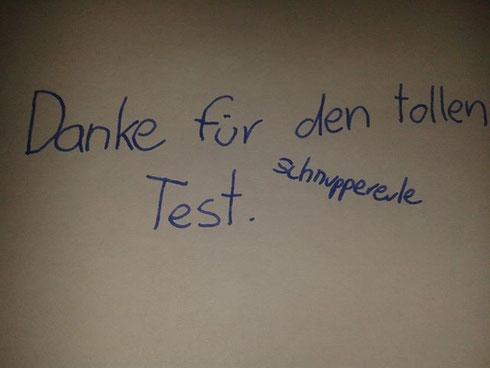 Danke für den tollen
Test.
schnuppereule